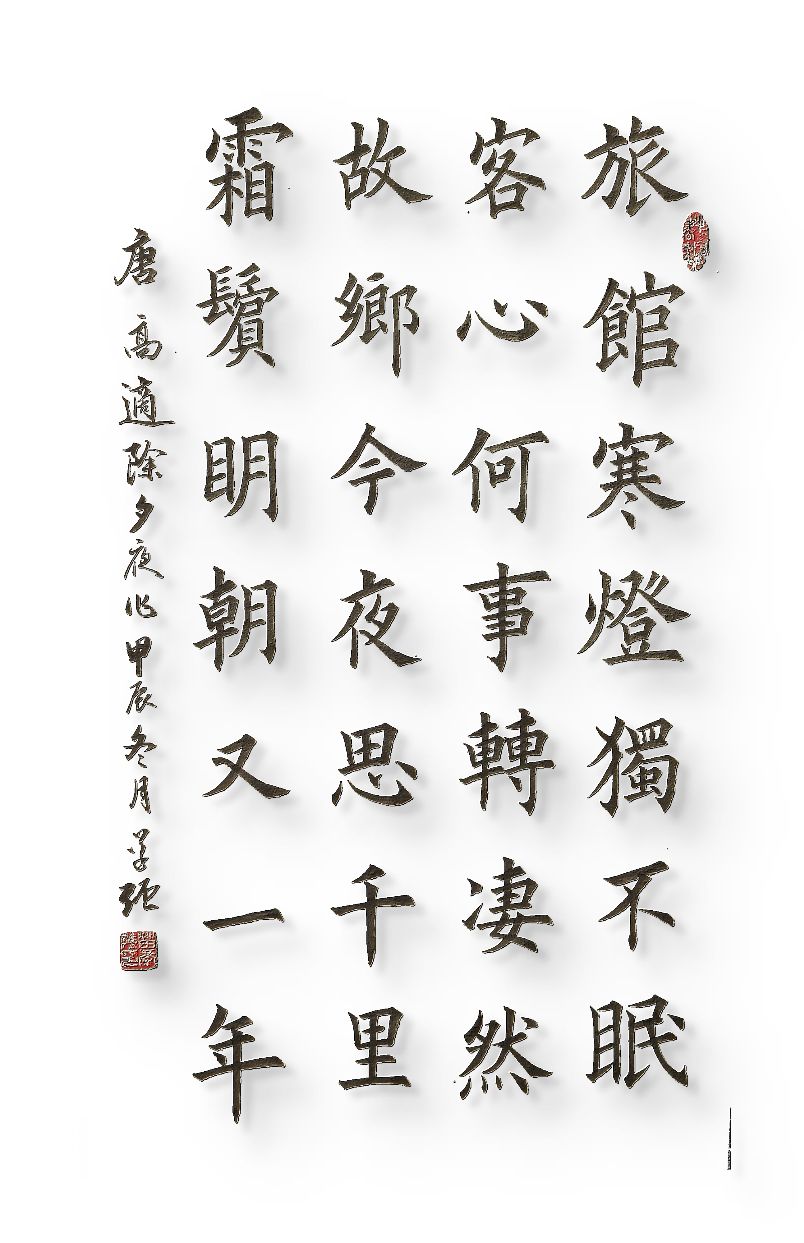 旅館寒燈獨不眠
客心何事轉凄然
故鄉今夜思千里
霜鬢明朝又一年
唐高適除夕夜作甲辰冬月学强